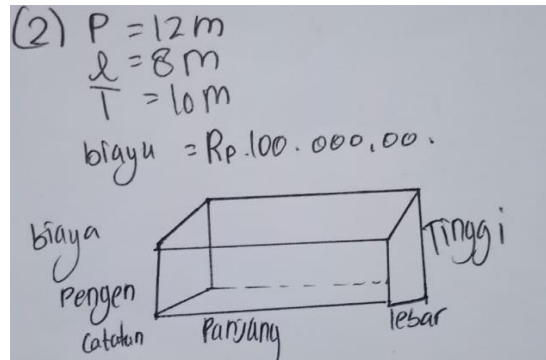 (2) P = 12 m
l = 8 m
T = 10 m
biaya = Rp.100.000,00.
biaya
Tinggi
Pengen
Catatan
Panjang
lebar